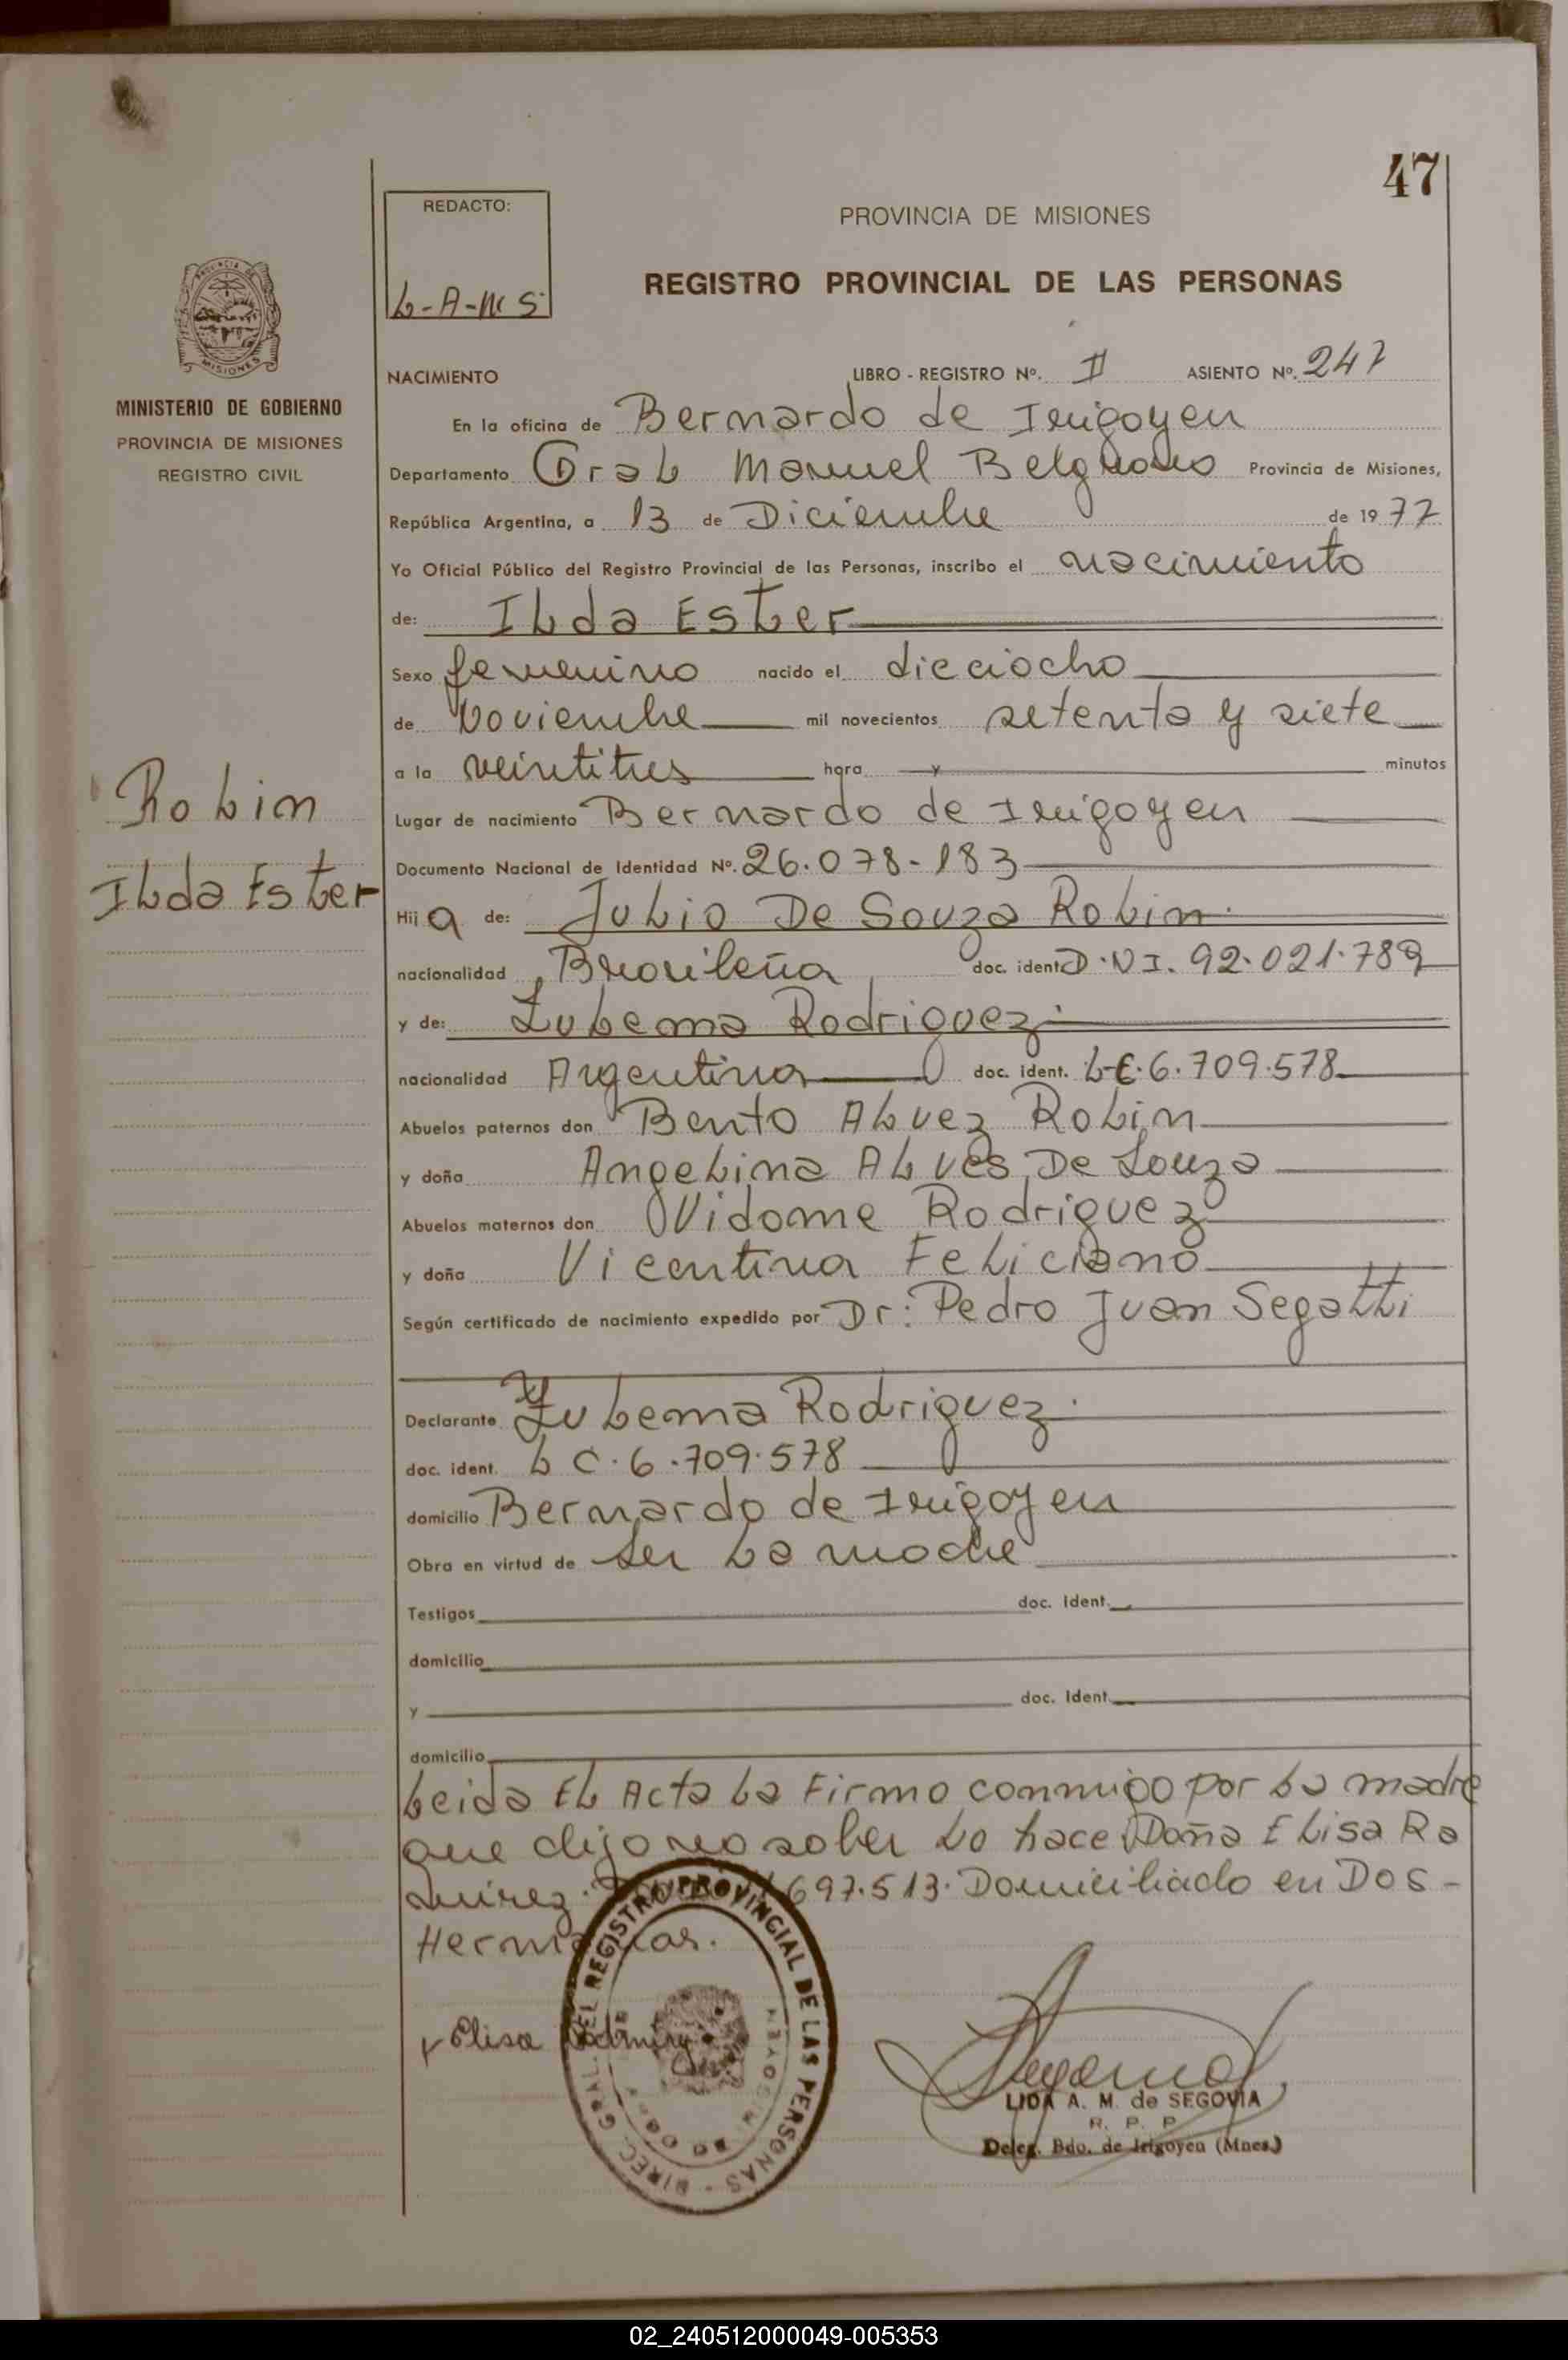 47
REDACTO:
L-A-M S
PROVINCIA DE MISIONES
REGISTRO PROVINCIAL DE LAS PERSONAS
MINISTERIO DE GOBIERNO
PROVINCIA DE MISIONES
REGISTRO CIVIL
NACIMIENTO LIBRO - REGISTRO Nº. II ASIENTO Nº. 247
En la oficina de Bernardo de Irigoyen
Departamento Gral Manuel Belgrano Provincia de Misiones,
República Argentina, a 13 de Diciembre de 1977
Yo Oficial Público del Registro Provincial de las Personas, inscribo el nacimiento
de: Ilda Ester
Sexo femenino nacido el dieciocho
de Noviembre mil novecientos setenta y siete
a la veintitres hora y minutos
Lugar de nacimiento Bernardo de Irigoyen
Documento Nacional de Identidad Nº. 26.078-183
Robin
Ilda Ester
Hij a de: Julio De Souza Robin
nacionalidad Brasileña doc. ident D.N I. 92.021.789
y de: Zulema Rodriguez
nacionalidad Argentina doc. ident. L.C. 6.709.578
Abuelos paternos don Bento Alvez Robin
y doña Angelina Alves De Souza
Abuelos maternos don Vidome Rodriguez
y doña Vicentina Feliciano
Según certificado de nacimiento expedido por Dr: Pedro Juan Segatti
Declarante Zulema Rodriguez
doc. ident. L C. 6.709.578
domicilio Bernardo de Irigoyen
Obra en virtud de ser la madre
Testigos doc. ident.
domicilio
y doc. ident
domicilio
Leida El Acta la Firmo conmigo por la madre
que dijo no saber lo hace Doña Elisa Ra
mirez. 697.513. Domiciliado en Dos-
Hermanas.
x Elisa Ramirez
DIREC. GRAL. DEL REGISTRO PROVINCIAL DE LAS PERSONAS
LIDA A. M. de SEGOVIA
R. P. P.
Deleg. Bdo. de Irigoyen (Mnes.)
02_240512000049-005353